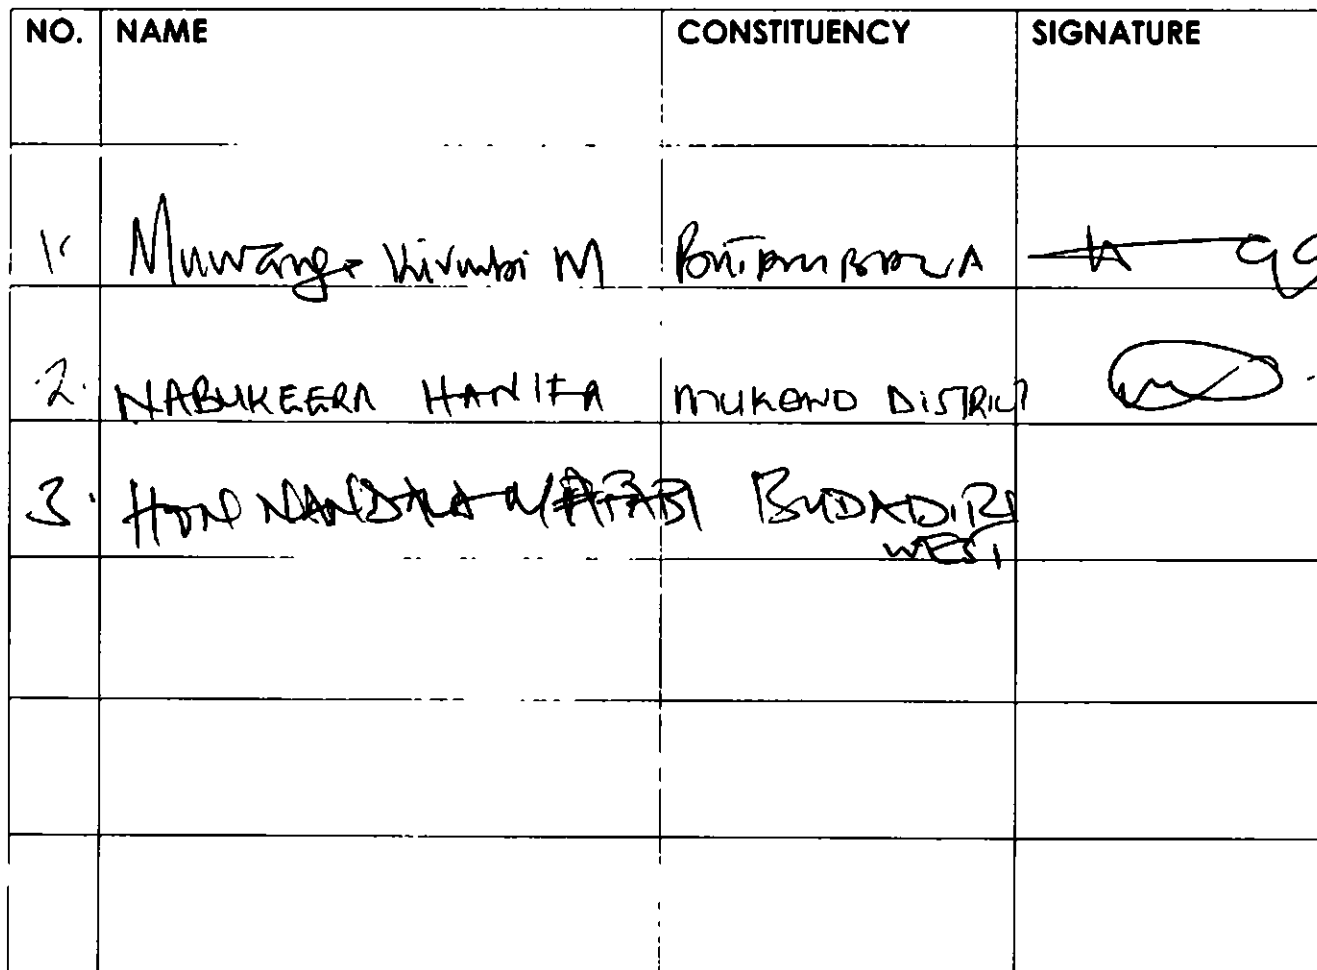 NO. NAME CONSTITUENCY SIGNATURE
1. Muwanga Kivumbi M BUTAMBALA
2. NABUKEERA HANIFA MUKONO DISTRICT
3. HON NANDALA MAFABI BUDADIRI
WEST